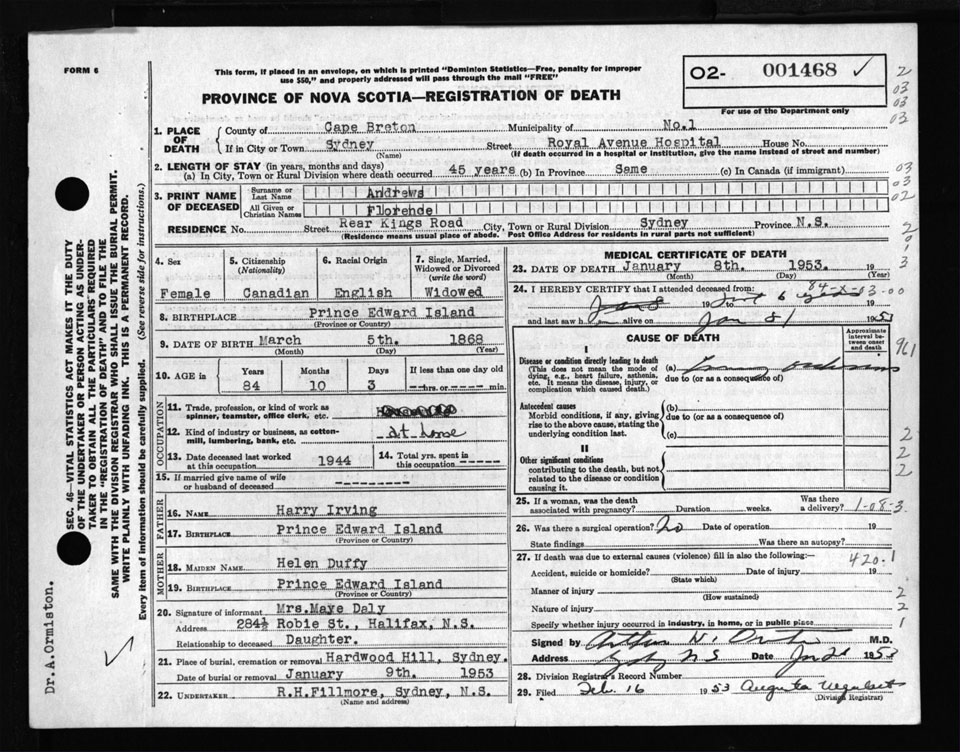 FORM 6
This form, if placed in an envelope, on which is printed "Dominion Statistics—Free, penalty for improper
use $50," and properly addressed will pass through the mail "FREE"
O2- 001468 ✓
For use of the Department only
PROVINCE OF NOVA SCOTIA—REGISTRATION OF DEATH
1. PLACE OF DEATH
County of Cape Breton Municipality of No.1
If in City or Town Sydney Street Royal Avenue Hospital House No.
(Name) (If death occurred in a hospital or institution, give the name instead of street and number)
2. LENGTH OF STAY (in years, months and days)
(a) In City, Town or Rural Division where death occurred 45 years (b) In Province Same (c) In Canada (if immigrant)
3. PRINT NAME OF DECEASED
Surname or Last Name Andrews
All Given or Christian Names
RESIDENCE No. Street Rear Kings Road City, Town or Rural Division Sydney Province N.S.
(Residence means usual place of abode. Post Office Address for residents in rural parts not sufficient)
4. Sex
Female
5. Citizenship (Nationality)
Canadian
6. Racial Origin
English
7. Single, Married, Widowed or Divorced (write the word)
Widowed
8. BIRTHPLACE Prince Edward Island
(Province or Country)
9. DATE OF BIRTH March 5th. 1868
(Month) (Day) (Year)
10. AGE in Years Months Days If less than one day old
84 10 3 hrs. or min.
OCCUPATION
11. Trade, profession, or kind of work as
spinner, teamster, office clerk, etc.
12. Kind of industry or business, as cotton-
mill, lumbering, bank, etc. at home
13. Date deceased last worked
at this occupation 1944
14. Total yrs. spent in
this occupation
15. If married give name of wife
or husband of deceased
FATHER
16. NAME Harry Irving
17. BIRTHPLACE Prince Edward Island
(Province or Country)
MOTHER
18. MAIDEN NAME Helen Duffy
19. BIRTHPLACE Prince Edward Island
(Province or Country)
20. Signature of informant Mrs.Maye Daly
Address 284½ Robie St., Halifax, N.S.
Relationship to deceased Daughter.
21. Place of burial, cremation or removal Hardwood Hill, Sydney.
Date of burial or removal January 9th. 1953
22. UNDERTAKER R.H.Fillmore, Sydney, N.S.
(Name and address)
MEDICAL CERTIFICATE OF DEATH
23. DATE OF DEATH January 8th. 1953. 19
(Month) (Day) (Year)
24. I HEREBY CERTIFY that I attended deceased from:
19 6 19
and last saw h alive on Jan 8 1953
CAUSE OF DEATH
Approximate interval between onset and death
I
Disease or condition directly leading to death
(This does not mean the mode of
dying, e.g., heart failure, asthenia,
etc. It means the disease, injury, or
complication which caused death.)
(a)
due to (or as a consequence of)
Antecedent causes
Morbid conditions, if any, giving
rise to the above cause, stating the
underlying condition last.
(b)
due to (or as a consequence of)
(c)
II
Other significant conditions
contributing to the death, but not
related to the disease or condition
causing it.
25. If a woman, was the death
associated with pregnancy? Duration weeks. Was there a delivery?
1-08-3
26. Was there a surgical operation? no Date of operation 19
State findings Was there an autopsy?
27. If death was due to external causes (violence) fill in also the following:
420.1
Accident, suicide or homicide? Date of injury 19
(State which)
Manner of injury
(How sustained)
Nature of injury
Specify whether injury occurred in industry, in home, or in public place
Signed by Arthur M.D.
Address Sydney N S Date Jan 1953
28. Division Registrar's Record Number
29. Filed Feb. 16 1953 Augusta
(Division Registrar)
SEC. 46—VITAL STATISTICS ACT MAKES IT THE DUTY
OF THE UNDERTAKER OR PERSON ACTING AS UNDER-
TAKER TO OBTAIN ALL THE PARTICULARS REQUIRED
IN THE "REGISTRATION OF DEATH" AND TO FILE THE
SAME WITH THE DIVISION REGISTRAR WHO SHALL ISSUE THE BURIAL PERMIT.
WRITE PLAINLY WITH UNFADING INK. THIS IS A PERMANENT RECORD.
Every item of information should be carefully supplied. (See reverse side for instructions.)
Dr.A.Ormiston.
2
03
03
03
03
03
02
2
0
1
3
961
2
2
2
2
2
1